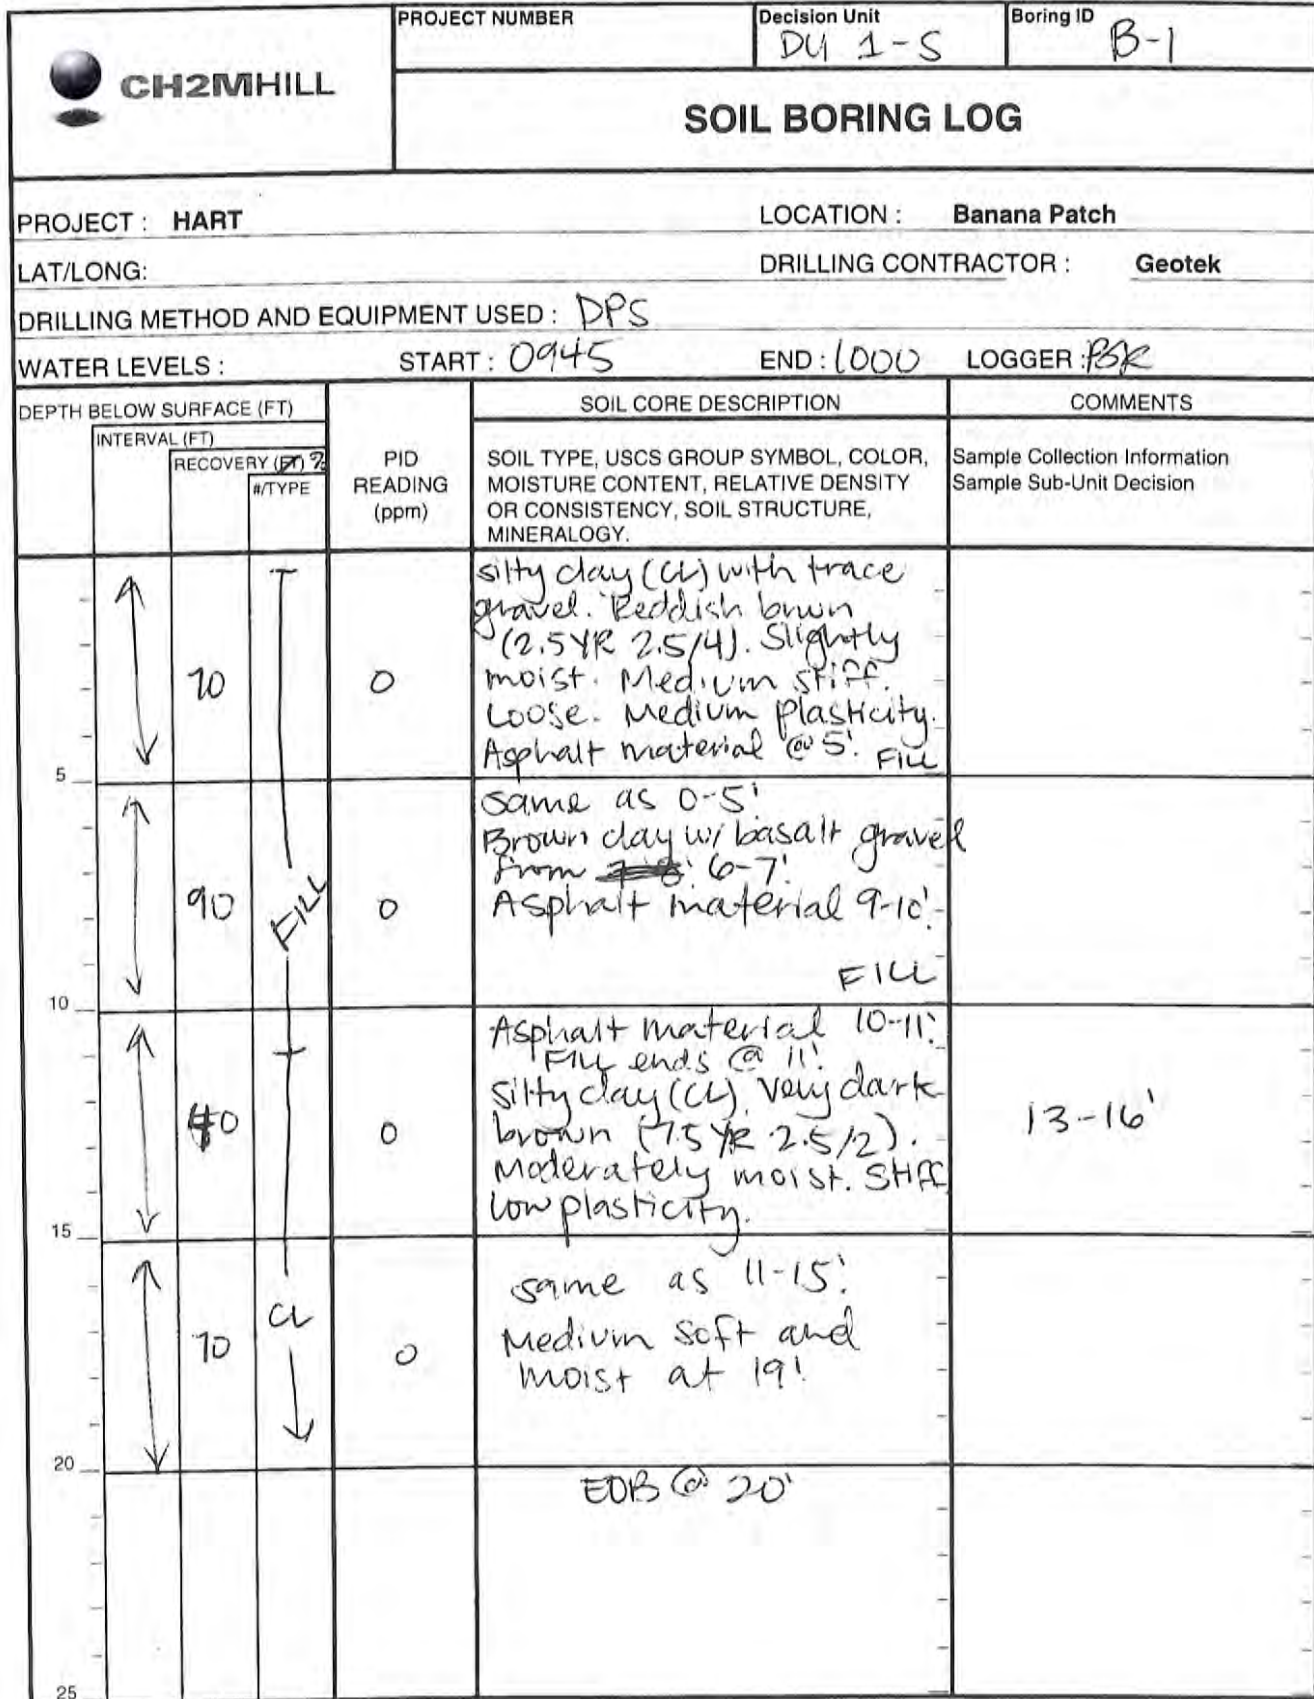 CH2MHILL
PROJECT NUMBER
Decision Unit
DU 1-S
Boring ID
B-1
SOIL BORING LOG
PROJECT : HART
LOCATION : Banana Patch
LAT/LONG:
DRILLING CONTRACTOR : Geotek
DRILLING METHOD AND EQUIPMENT USED : DPS
WATER LEVELS :
START : 0945
END : 1000
LOGGER :
DEPTH BELOW SURFACE (FT)
INTERVAL (FT)
RECOVERY (FT) %
#/TYPE
PID
READING
(ppm)
SOIL CORE DESCRIPTION
SOIL TYPE, USCS GROUP SYMBOL, COLOR,
MOISTURE CONTENT, RELATIVE DENSITY
OR CONSISTENCY, SOIL STRUCTURE,
MINERALOGY.
COMMENTS
Sample Collection Information
Sample Sub-Unit Decision
70
0
silty clay (CL) with trace
gravel. Reddish brown
(2.5 YR 2.5/4). Slightly
moist. Medium stiff.
Loose. Medium plasticity.
Asphalt material @ 5'. FILL
5
90
FILL
0
same as 0-5'
Brown clay w/ basalt gravel
from 6-7'.
Asphalt material 9-10'.
FILL
10
40
0
Asphalt material 10-11'.
FILL ends @ 11'.
Silty clay (CL). Very dark
brown (7.5 YR 2.5/2).
Moderately moist. Stiff
low plasticity.
13-16'
15
70
CL
0
same as 11-15'.
Medium soft and
moist at 19'
20
EOB @ 20'
25